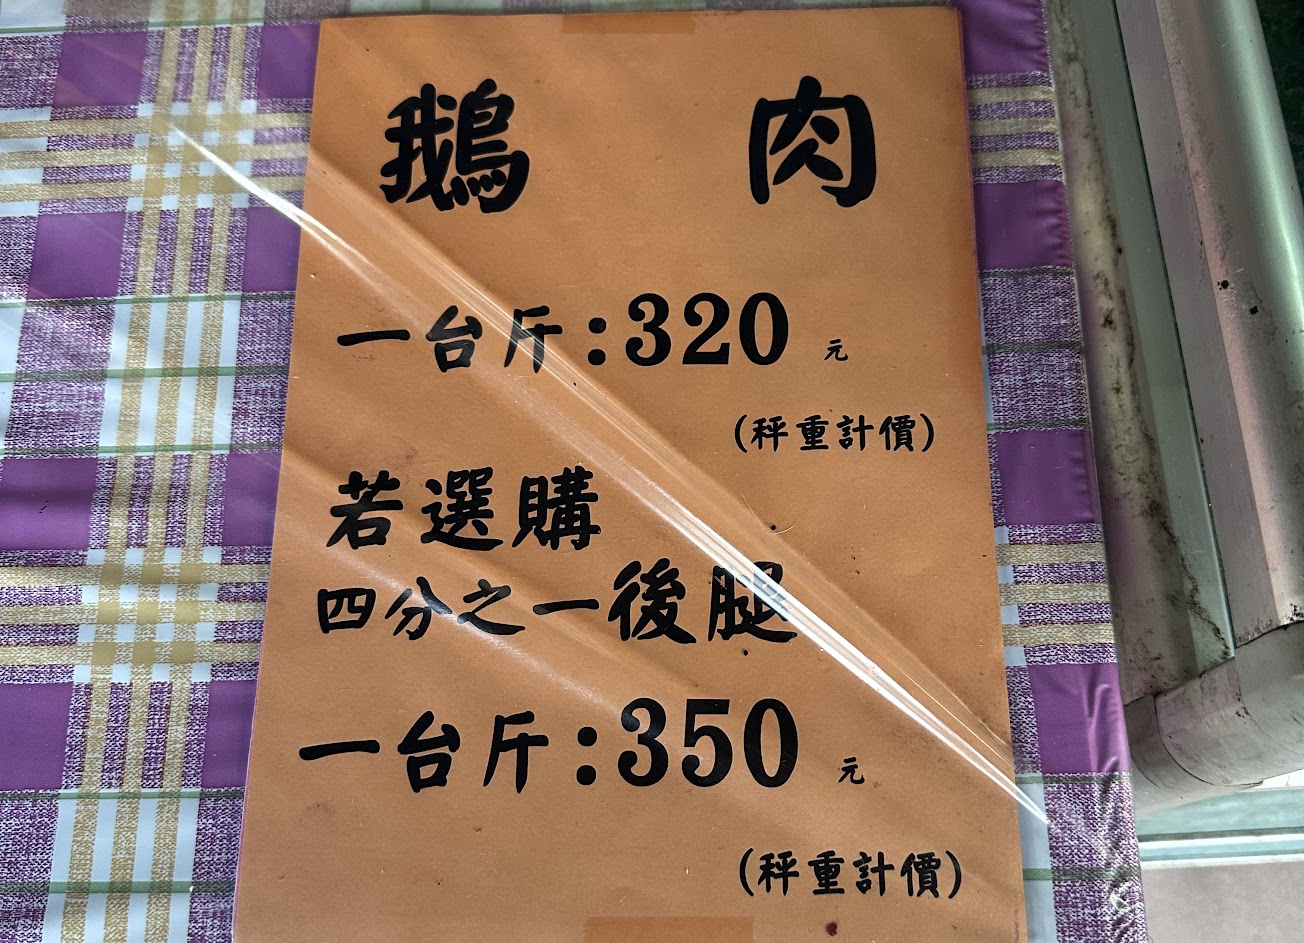 鵝 肉
一台斤:320 元
(秤重計價)
若選購
四分之一後腿
一台斤:350 元
(秤重計價)